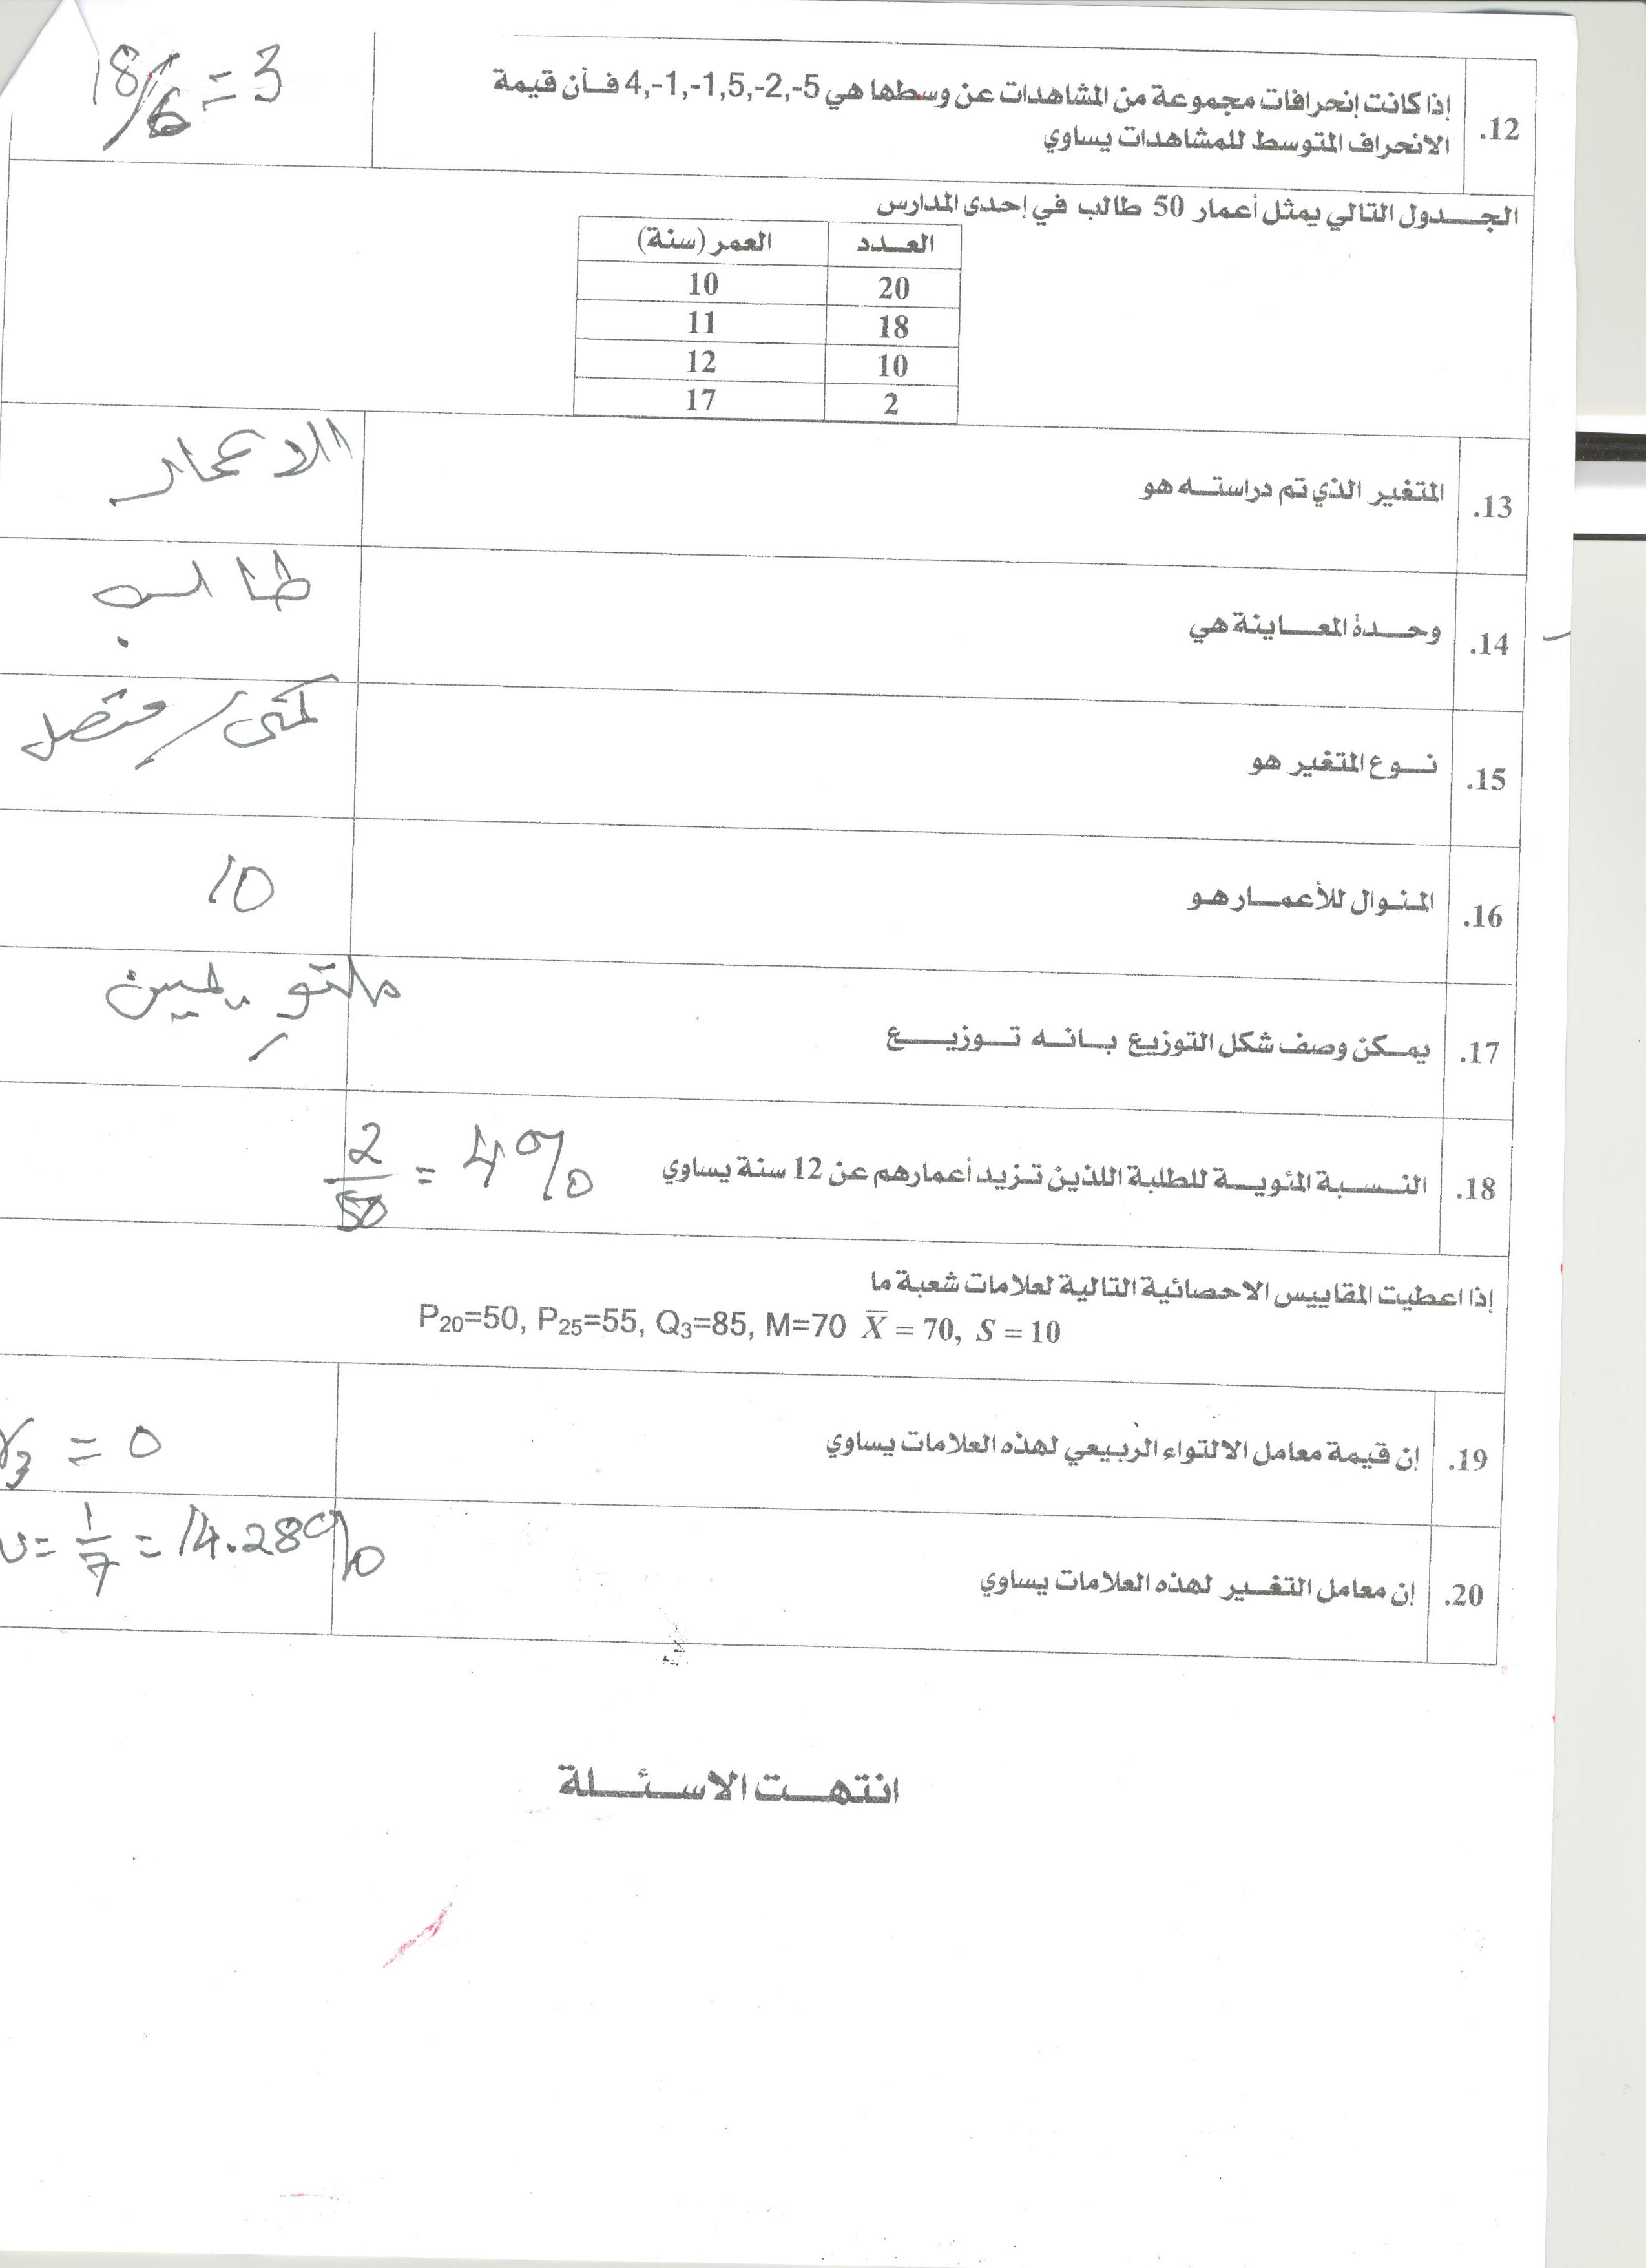 12. إذا كانت إنحرافات مجموعة من المشاهدات عن وسطها هي 4,-1,-1,5,-2,-5 فأن قيمة
الانحراف المتوسط للمشاهدات يساوي
18/6 = 3
الجدول التالي يمثل أعمار 50 طالب في إحدى المدارس
العدد العمر (سنة)
20 10
18 11
10 12
2 17
13. المتغير الذي تم دراسته هو
الاعمار
14. وحدة المعاينة هي
طالب
15. نوع المتغير هو
كمي / متصل
16. المنوال للأعمار هو
10
17. يمكن وصف شكل التوزيع بانه توزيع
ملتوٍ يمين
18. النسبة المئوية للطلبة اللذين تزيد أعمارهم عن 12 سنة يساوي
2/50 = 4%
إذا اعطيت المقاييس الاحصائية التالية لعلامات شعبة ما
P20=50, P25=55, Q3=85, M=70 X̅ = 70, S = 10
19. إن قيمة معامل الالتواء الربيعي لهذه العلامات يساوي
3 = 0
20. إن معامل التغير لهذه العلامات يساوي
= 1/7 = 14.28%
انتهت الاسئلة